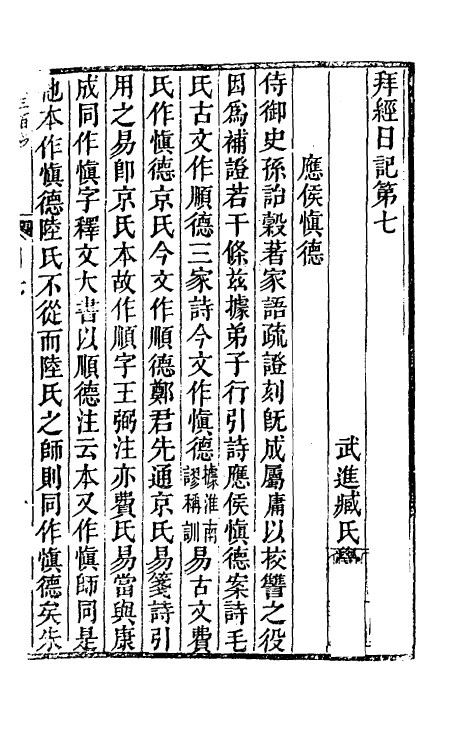 拜經日記第七
武進臧氏
應侯慎德
侍御史孫詒穀著家語疏證刻旣成屬庸以校讐之役
因爲補證若干條茲據弟子行引詩應侯慎德案詩毛
氏古文作順德三家詩今文作慎德據淮南謬稱訓易古文費
氏作慎德京氏今文作順德鄭君先通京氏易箋詩引
用之易卽京氏本故作順字王弼注亦費氏易當與康
成同作慎字釋文大書以順德注云本又作慎師同是
他本作慎德陸氏不從而陸氏之師則同作慎德矣朱